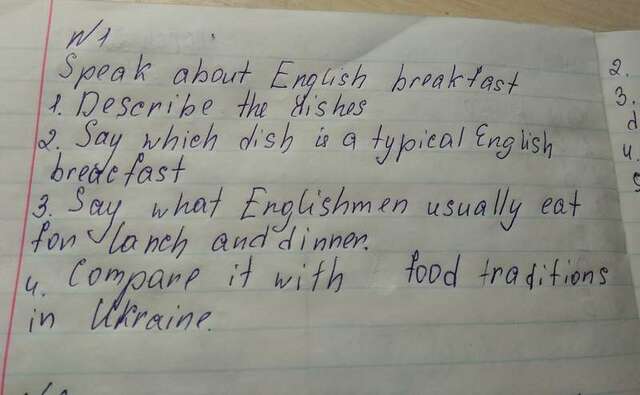 N1
Speak about English breakfast
1. Describe the dishes
2. Say which dish is a typical English
breacfast
3. Say what Englishmen usually eat
for lanch and dinner.
4. Compare it with food traditions
in Ukraine.
2.
3.
d
4.